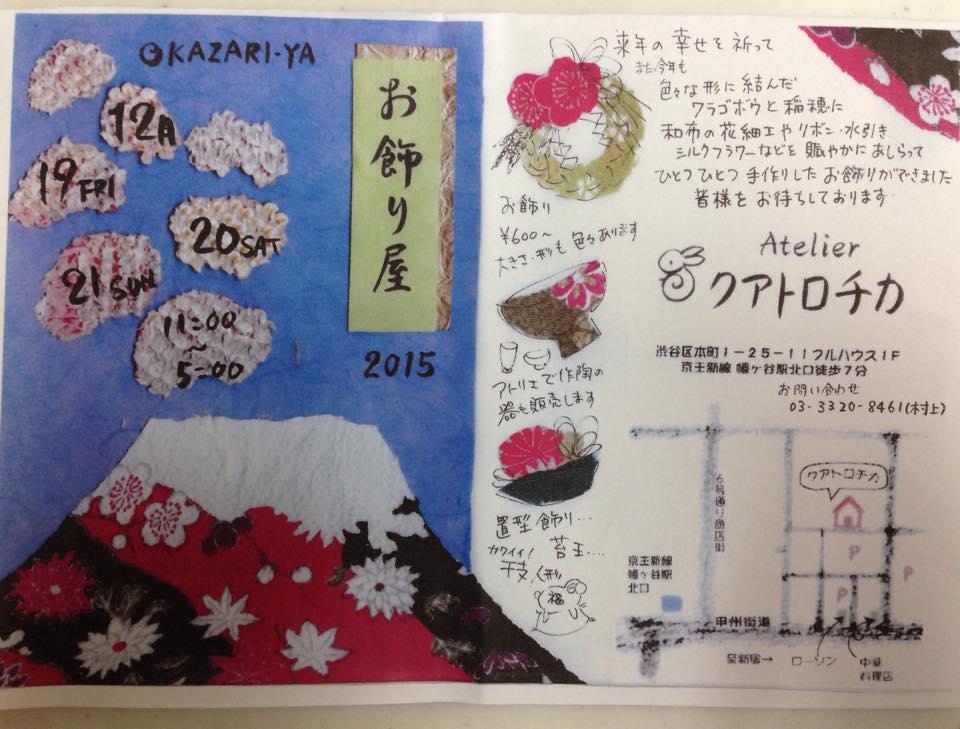 OKAZARI-YA
12月
19 FRI
20 SAT
21 SUN
11:00
~
5:00
お飾り屋
2015
来年の幸せを祈って
また今年も
色々な形に結んだ
ワラゴボウと稲穂に
和布の花細工やリボン・水引き
シルクフラワーなどを賑やかにあしらって
ひとつひとつ手作りしたお飾りができました
皆様をお待ちしております
お飾り
¥600~
大きさ・形も色々あります
アトリエで作陶の
器も販売します
置型飾り…
カワイイ!
苔玉…
干支人形
福
Atelier
クアトロチカ
渋谷区本町1-25-11フルハウス1F
京王新線 幡ヶ谷駅北口徒歩7分
お問い合わせ
03-3320-8461(村上)
クアトロチカ
6号通り商店街
P
P
P
京王新線
幡ヶ谷駅
北口
甲州街道
至新宿→
ローソン
中華
料理店